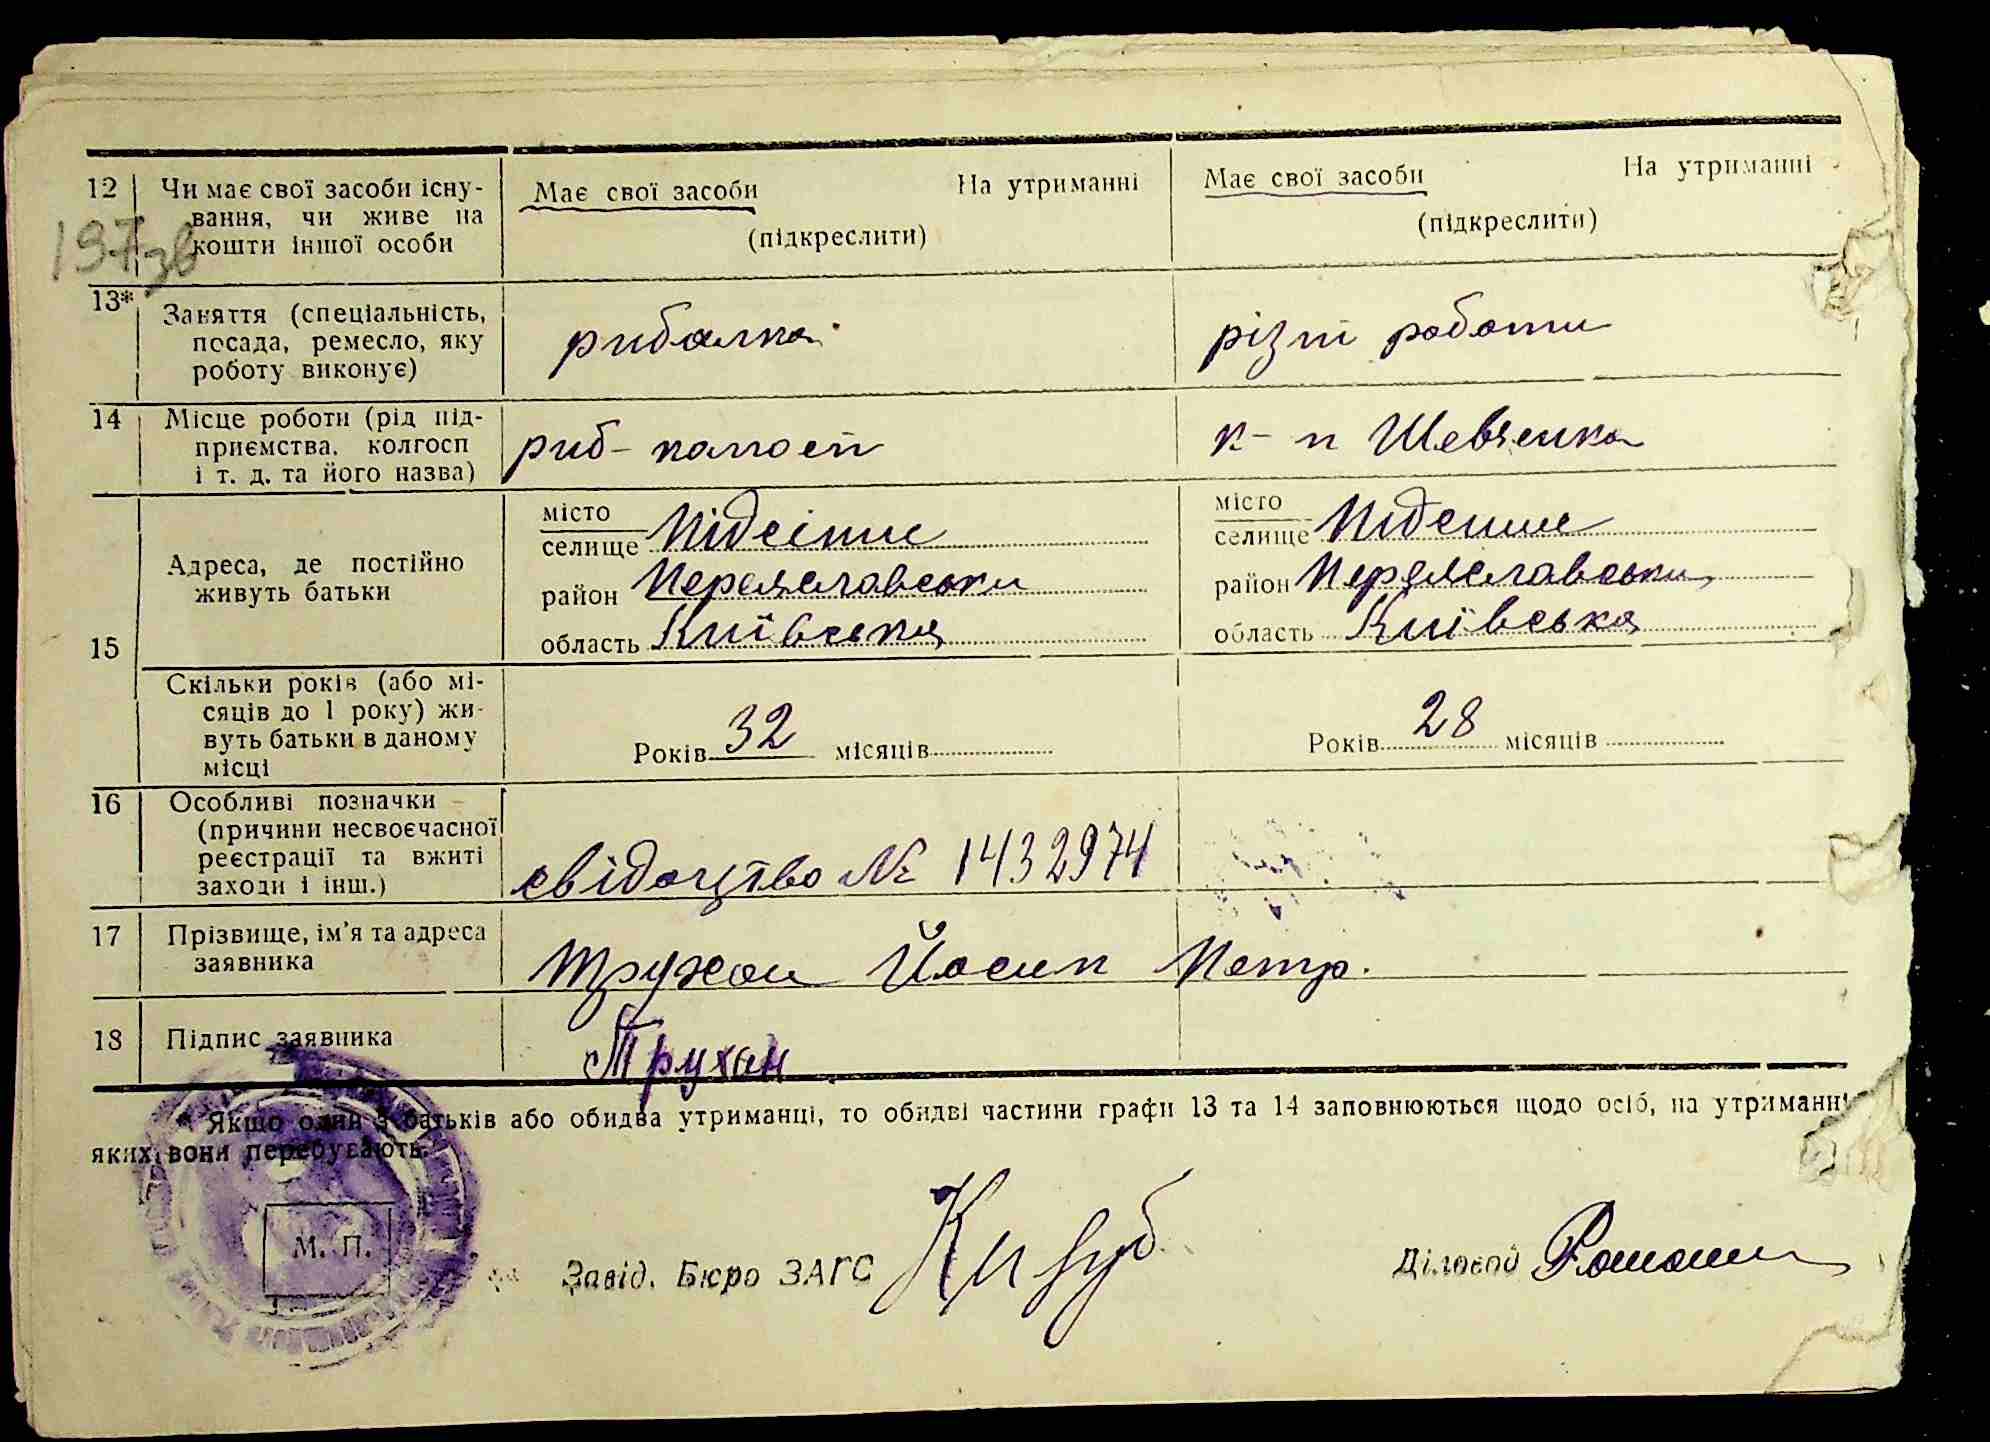 12 Чи має свої засоби існу- Має свої засоби На утриманні Має свої засоби На утриманні
вання, чи живе на (підкреслити) (підкреслити)
кошти іншої особи
197зв
13* Заняття (спеціальність, рибалка різні роботи
посада, ремесло, яку
роботу виконує)
14 Місце роботи (рід під- риб- к-п Шевченка
приємства, колгосп
і т. д. та його назва)
15 Адреса, де постійно
живуть батьки
місто
селище Підсінне
район Переяславськи
область Київська
місто
селище Підсінне
район Переяславськи
область Київська
Скільки років (або мі-
сяців до 1 року) жи-
вуть батьки в даному
місці
Років 32 місяців Років 28 місяців
16 Особливі позначки
(причини несвоєчасної
реєстрації та вжиті
заходи і інш.)
свідоцтво № 1432974
17 Прізвище, ім'я та адреса
заявника
Трухан Йосип Петр.
18 Підпис заявника Трухан
* Якщо один з батьків або обидва утриманці, то обидві частини графи 13 та 14 заповнюються щодо осіб, на утриманні
яких вони перебувають.
М. П.
Завід. Бюро ЗАГС Діловод